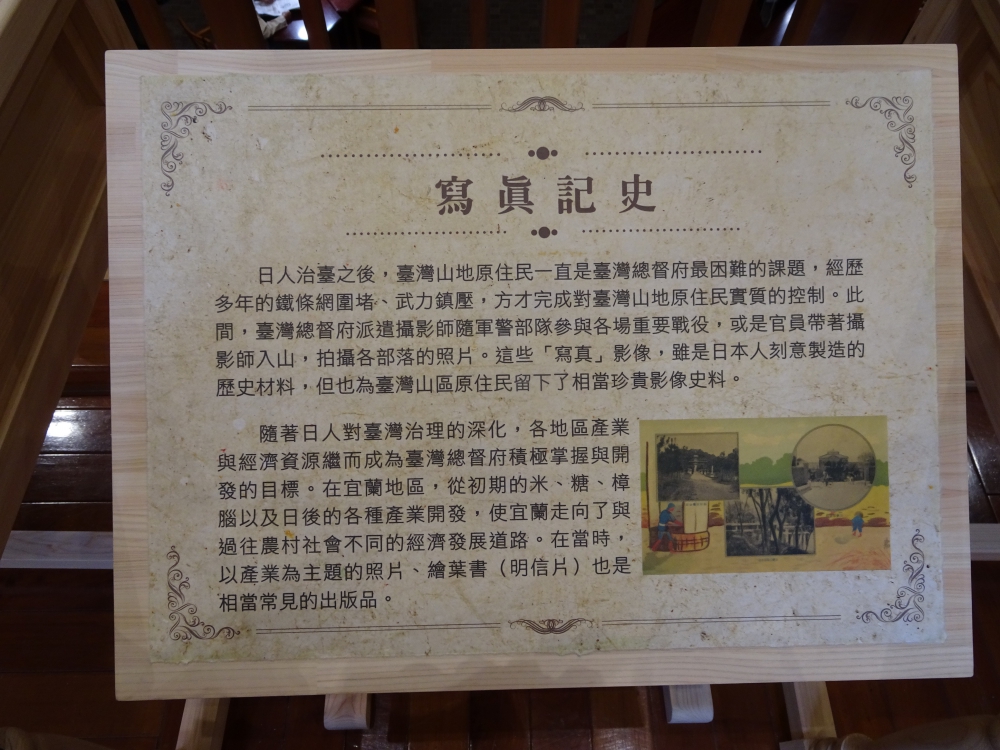 寫眞記史
日人治臺之後，臺灣山地原住民一直是臺灣總督府最困難的課題，經歷
多年的鐵條網圍堵、武力鎮壓，方才完成對臺灣山地原住民實質的控制。此
間，臺灣總督府派遣攝影師隨軍警部隊參與各場重要戰役，或是官員帶著攝
影師入山，拍攝各部落的照片。這些「寫真」影像，雖是日本人刻意製造的
歷史材料，但也為臺灣山區原住民留下了相當珍貴影像史料。
隨著日人對臺灣治理的深化，各地區產業
與經濟資源繼而成為臺灣總督府積極掌握與開
發的目標。在宜蘭地區，從初期的米、糖、樟
腦以及日後的各種產業開發，使宜蘭走向了與
過往農村社會不同的經濟發展道路。在當時，
以產業為主題的照片、繪葉書（明信片）也是
相當常見的出版品。